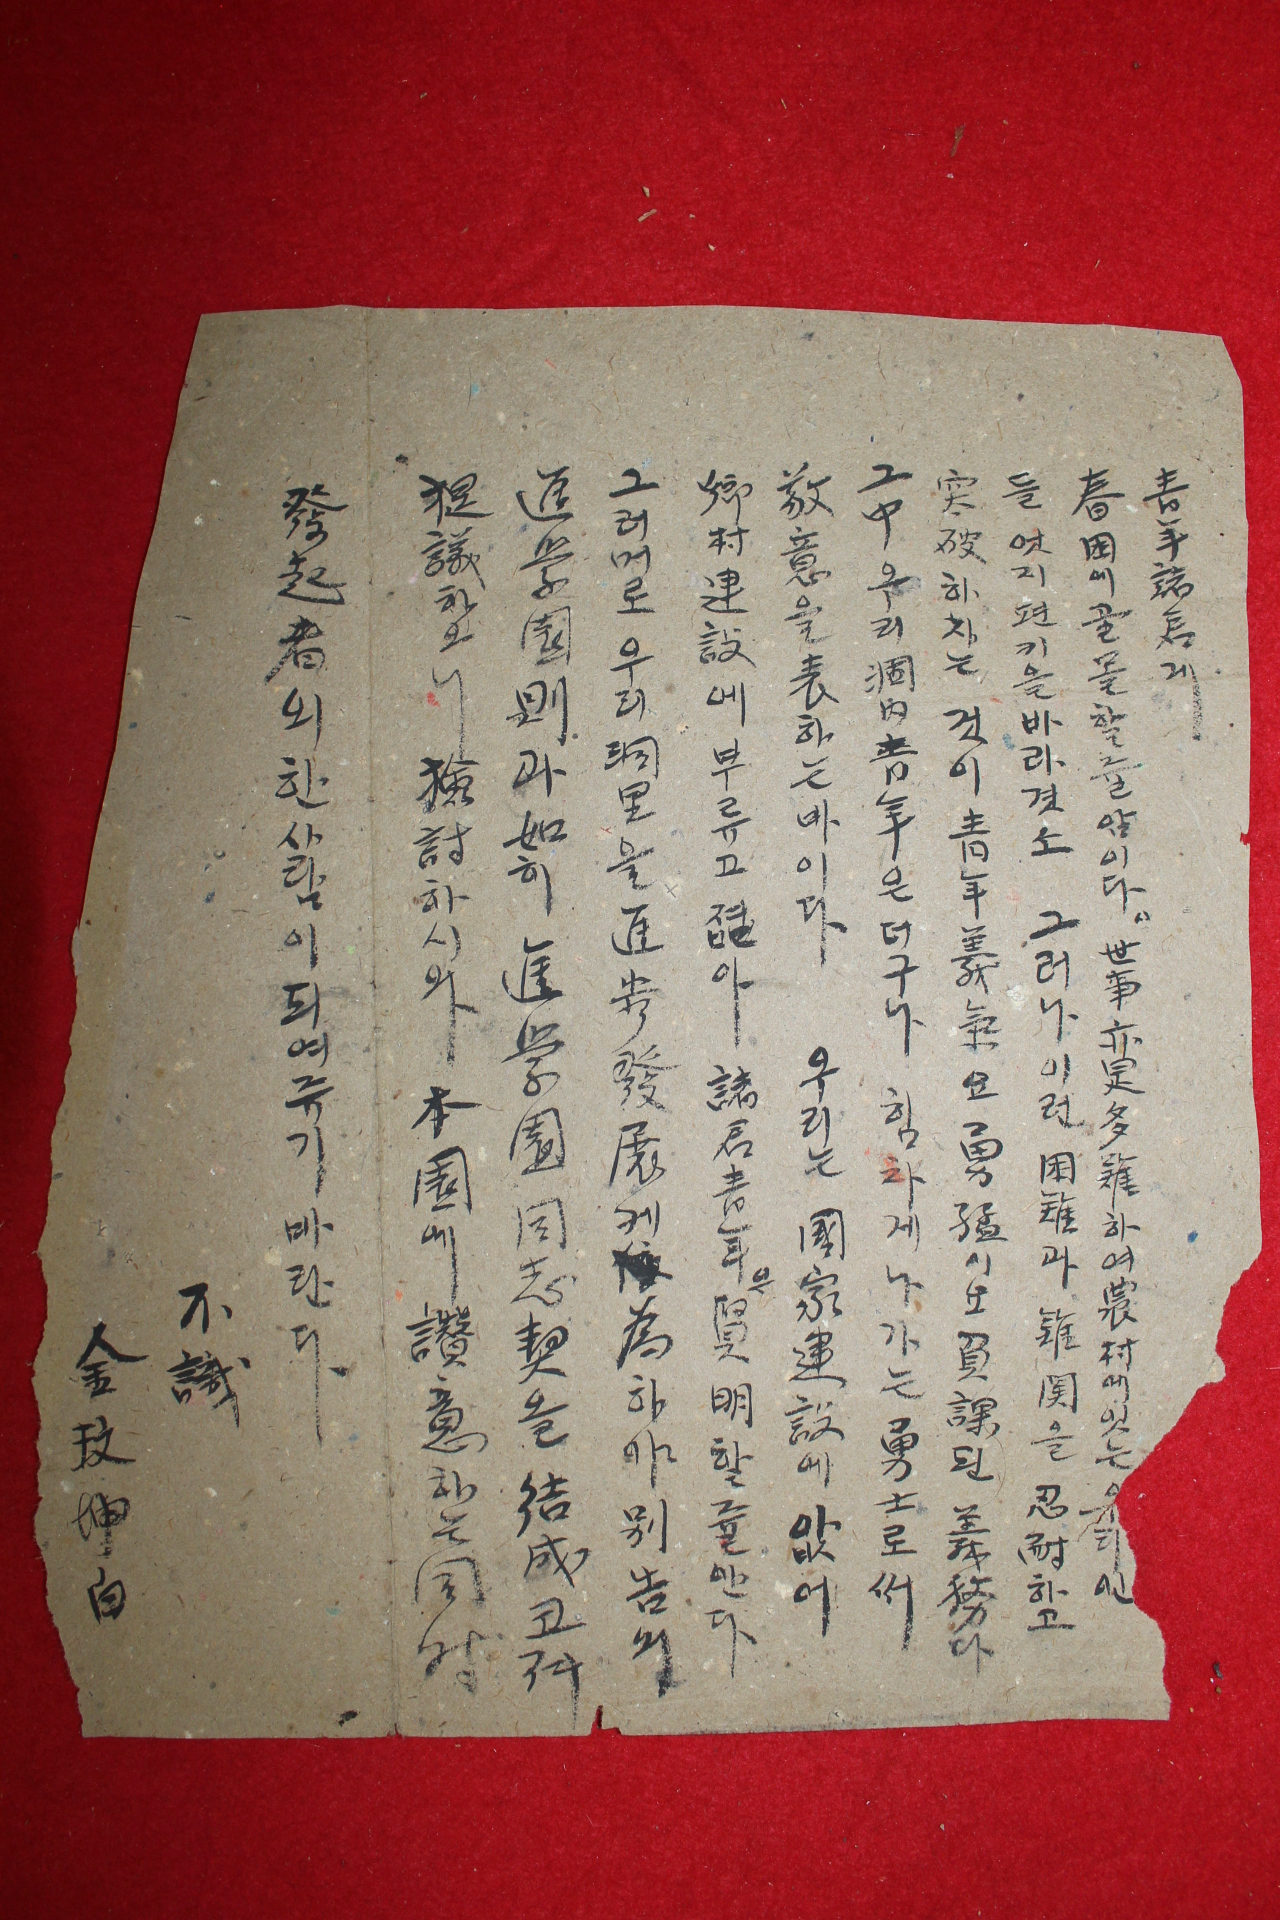 靑年諸君게
春困에 골몰할 줄 압이다. 世事亦是多難하여 農村에 잇는 우리인
들 엇지 편키을 바라겟소 그러나 이런 困難과 難関을 忍耐하고
突破하자는 것이 靑年義氣요 勇猛이요 負課된 義務다
그中 우리 洞內 靑年은 더구나 힘차게 나가는 勇士로써
敬意을 表하는 바이다 우리는 國家建設에 앖어
鄕村建設에 부류고 젊아 諸君靑年은 賢明할 줄 안다
그러머로 우리 洞里을 進步發展케 爲하야 別告의
進学園則과 如히 進学園同志契을 結成코저
提議하오니 檢討하시와 本園에 讚意하는 同時
發起者의 한사람이 되여쥬기 바란다
不識
金玟坤白